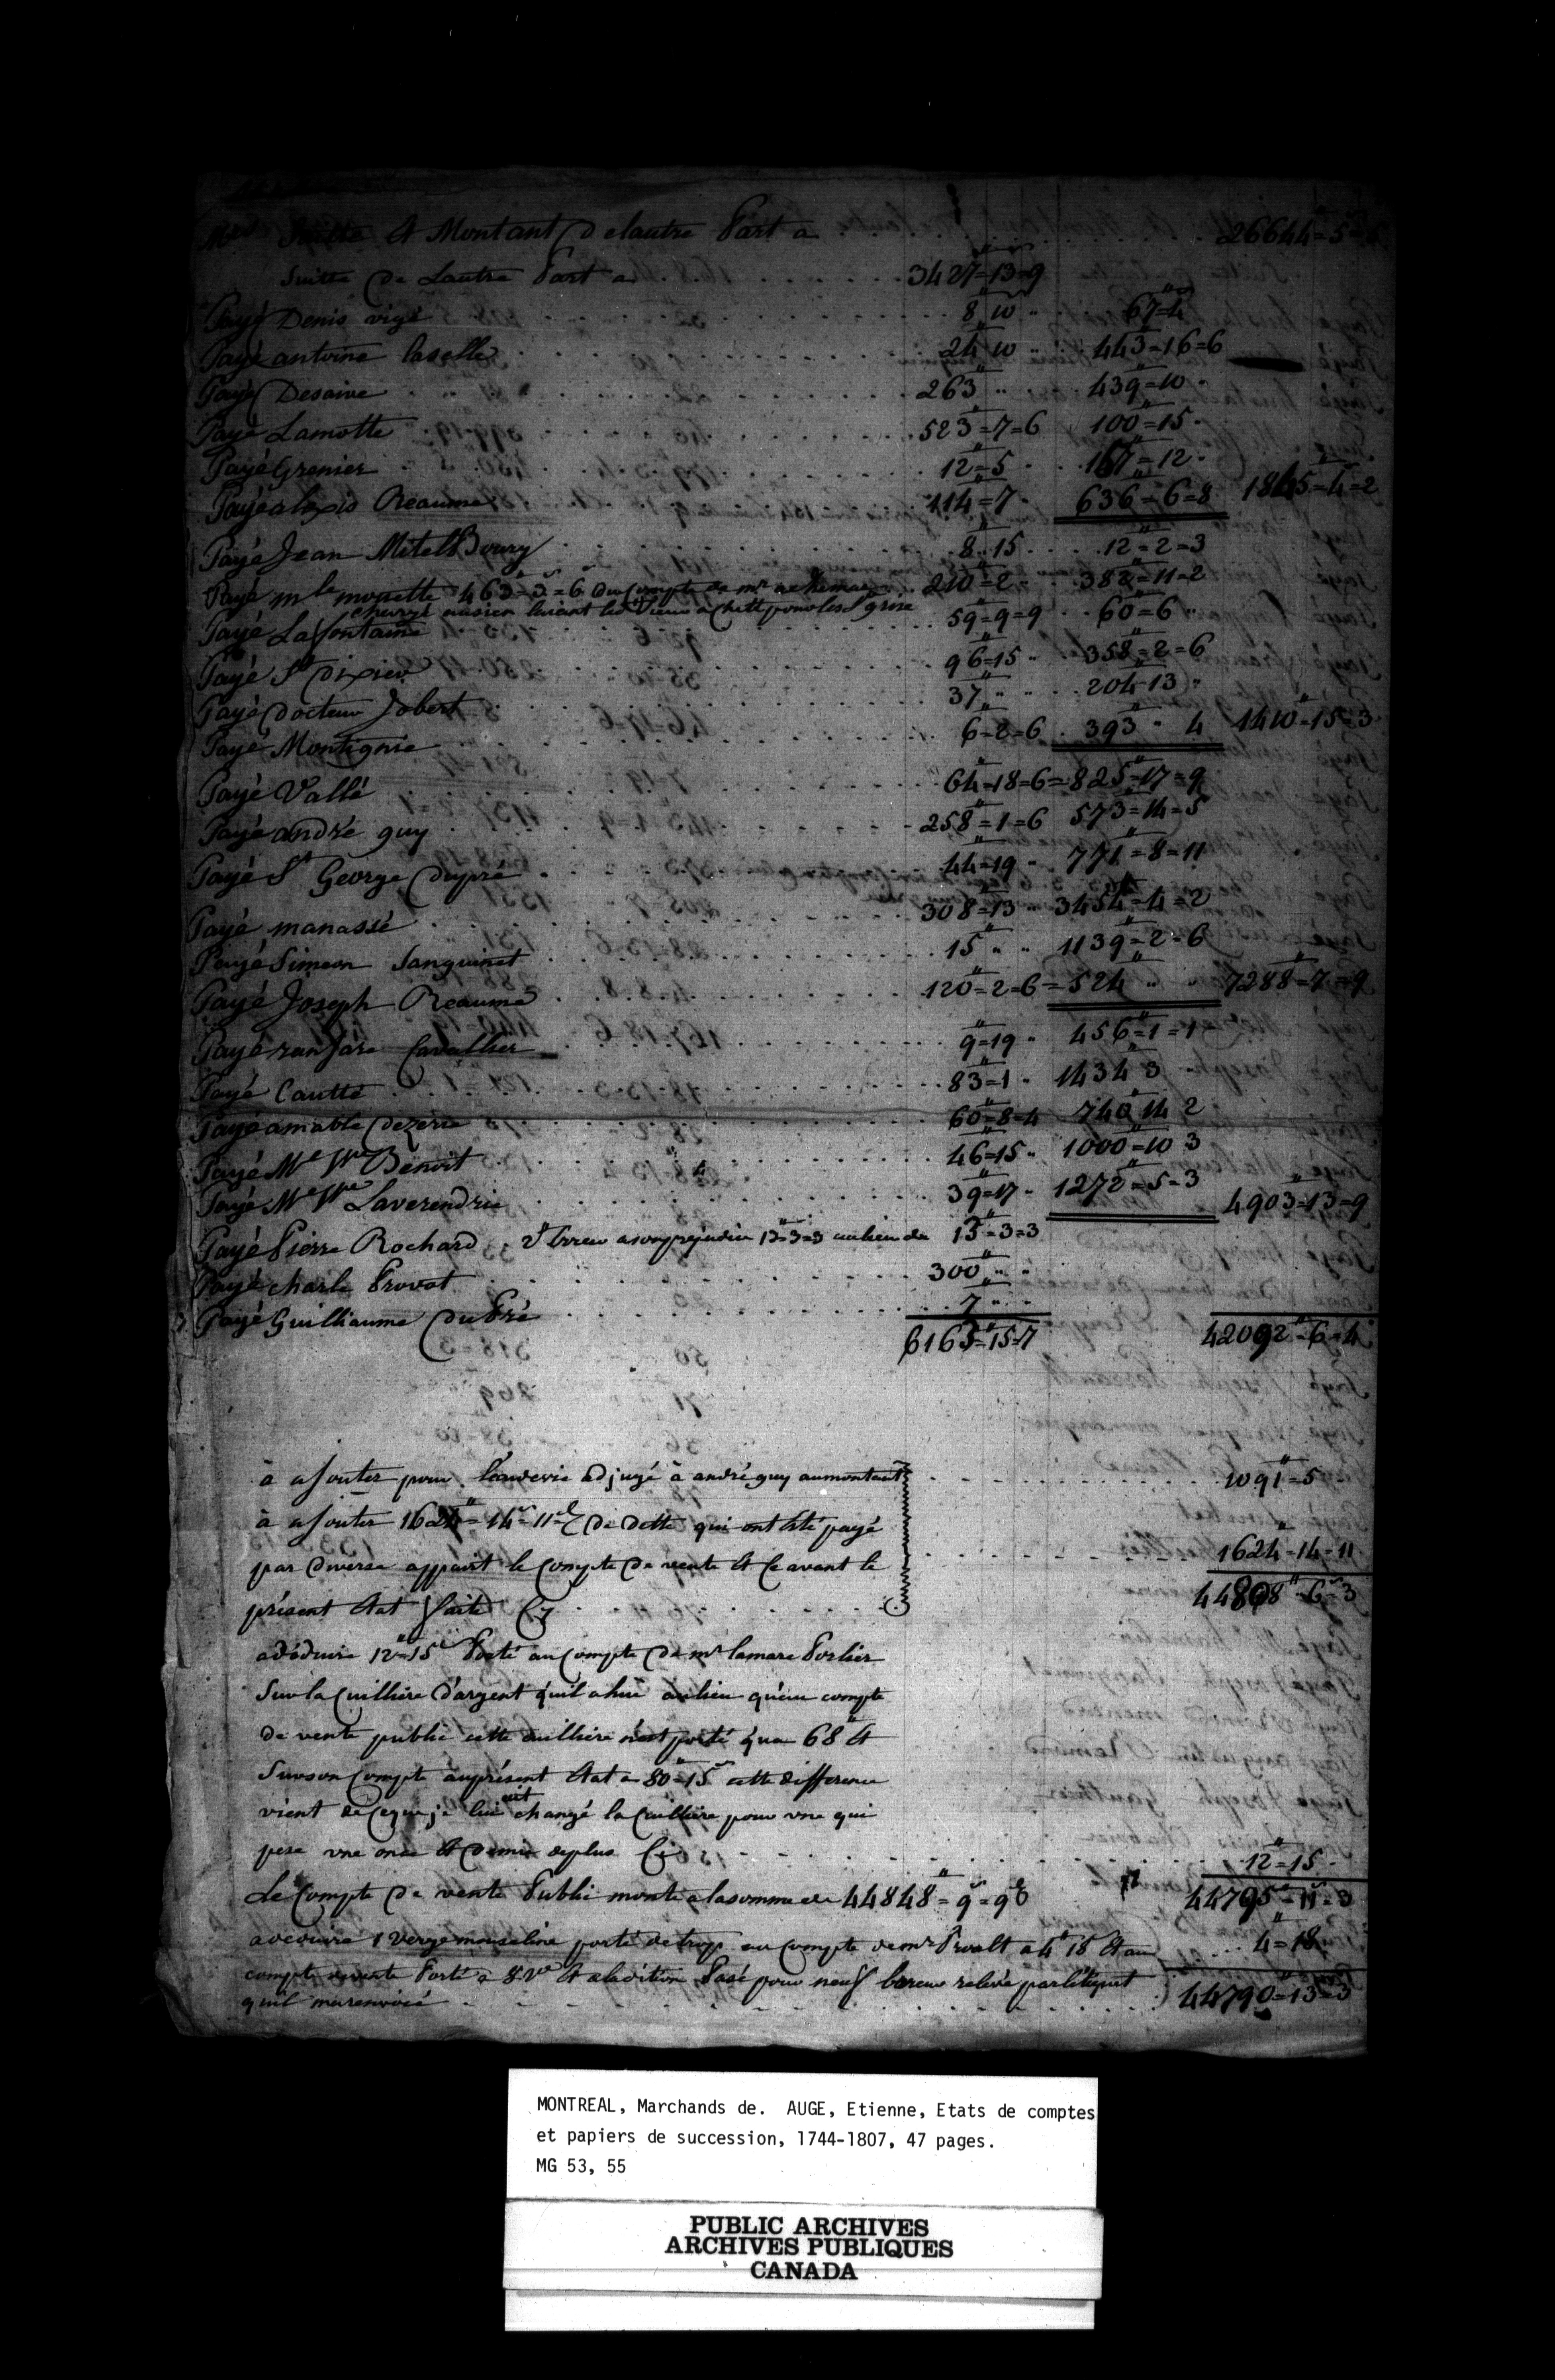 Suitte & Montant de lautre Part a 26644"=5=
Suitte de Lautre Part a 3427"=13=9
Payé Denis vigé 8" 10 67"=4
Payé antoine laselle 24" 10 443"=16=6
Payé Desaive 263" 439"=10
Payé Lamotte 523"=7=6 100"=15
Payé Grenier 12"=5 157"=12
Payé alexis Reaume 114"=7 636"=6=8 1845"=4=2
Payé Jean MitelBoury 8" 15 12"=2=3
Payé mle monette 463"=3=6 du Compte de mr 210"=2 382"=11=2
Payé Lafontaine 59"=9=9 60"=6
Payé St Dixier 96"=15 358"=2=6
Payé Docteur Jobert 37" 204"13
Payé Montignie 6"=2=6 393" 4 1410"=15=3
Payé Vallé 64"=18=6 825"=17=9
Payé andré guy 258"=1=6 573"=14=5
Payé St George Dupré 44"=19 771"=8=11
Payé manassé 308"=13 3454"=4=2
Payé Simeon Sanguinet 15" 1139"=2=6
Payé Joseph Reaume 120"=2=6 524" 7288"=7=9
Payé Cavallier 9"=19 456"=1=1
Payé Cautté 83"=1 1434" 3
Payé amable Dezerie 60"=8=4 740" 14 2
Payé Me Vve Benoit 46"=15 1000"=10 3
Payé Me Vve Laverendrie 39"=17 1272"=5=3 4903"=13=9
Payé Pierre Rochard Erreur a son prejudice 13"=3=3 au lieu de 13"=3=3
Payé charle Provot 300"
Payé Guilliaume DuPré 7"
6163"=15=7 42092"=6=4
à ajouter pour adjugé à andré guy aumontant 1091"=5
à ajouter 1624"=14s=11d de dette qui ont été payé
par diverse appant le Compte de vente & avant le 1624"=14=11
présent Etat faite Cy 44808"=6=3
adéduire 12"=15s Porté au Compte de mr lamare Porlier
Sur la Cuilliere d'argent quil a hue aulieu qu'au compte
de vente public cette cuilliere n'est porté qua 68" &
Surson Compte auprésent Etat a 80"=15s cette difference
vient de ceque je lui ait changé la Cuilliere pour vne qui
pese vne once & demie deplus Cy 12"=15
Le Compte de vente Public monte a lasomme de 44848"=9s=9d 44795"=11=3
adeduire 1 verge mouseline porté de trop au Compte de mr Pruolt a 4" 18 & au 4"=18
compte de vente Porté a 8 Ve & aladition Pasé pour neuf relevé par
quil ma renvoiée 44790"=13=3
MONTREAL, Marchands de. AUGE, Etienne, Etats de comptes
et papiers de succession, 1744-1807, 47 pages.
MG 53, 55
PUBLIC ARCHIVES
ARCHIVES PUBLIQUES
CANADA